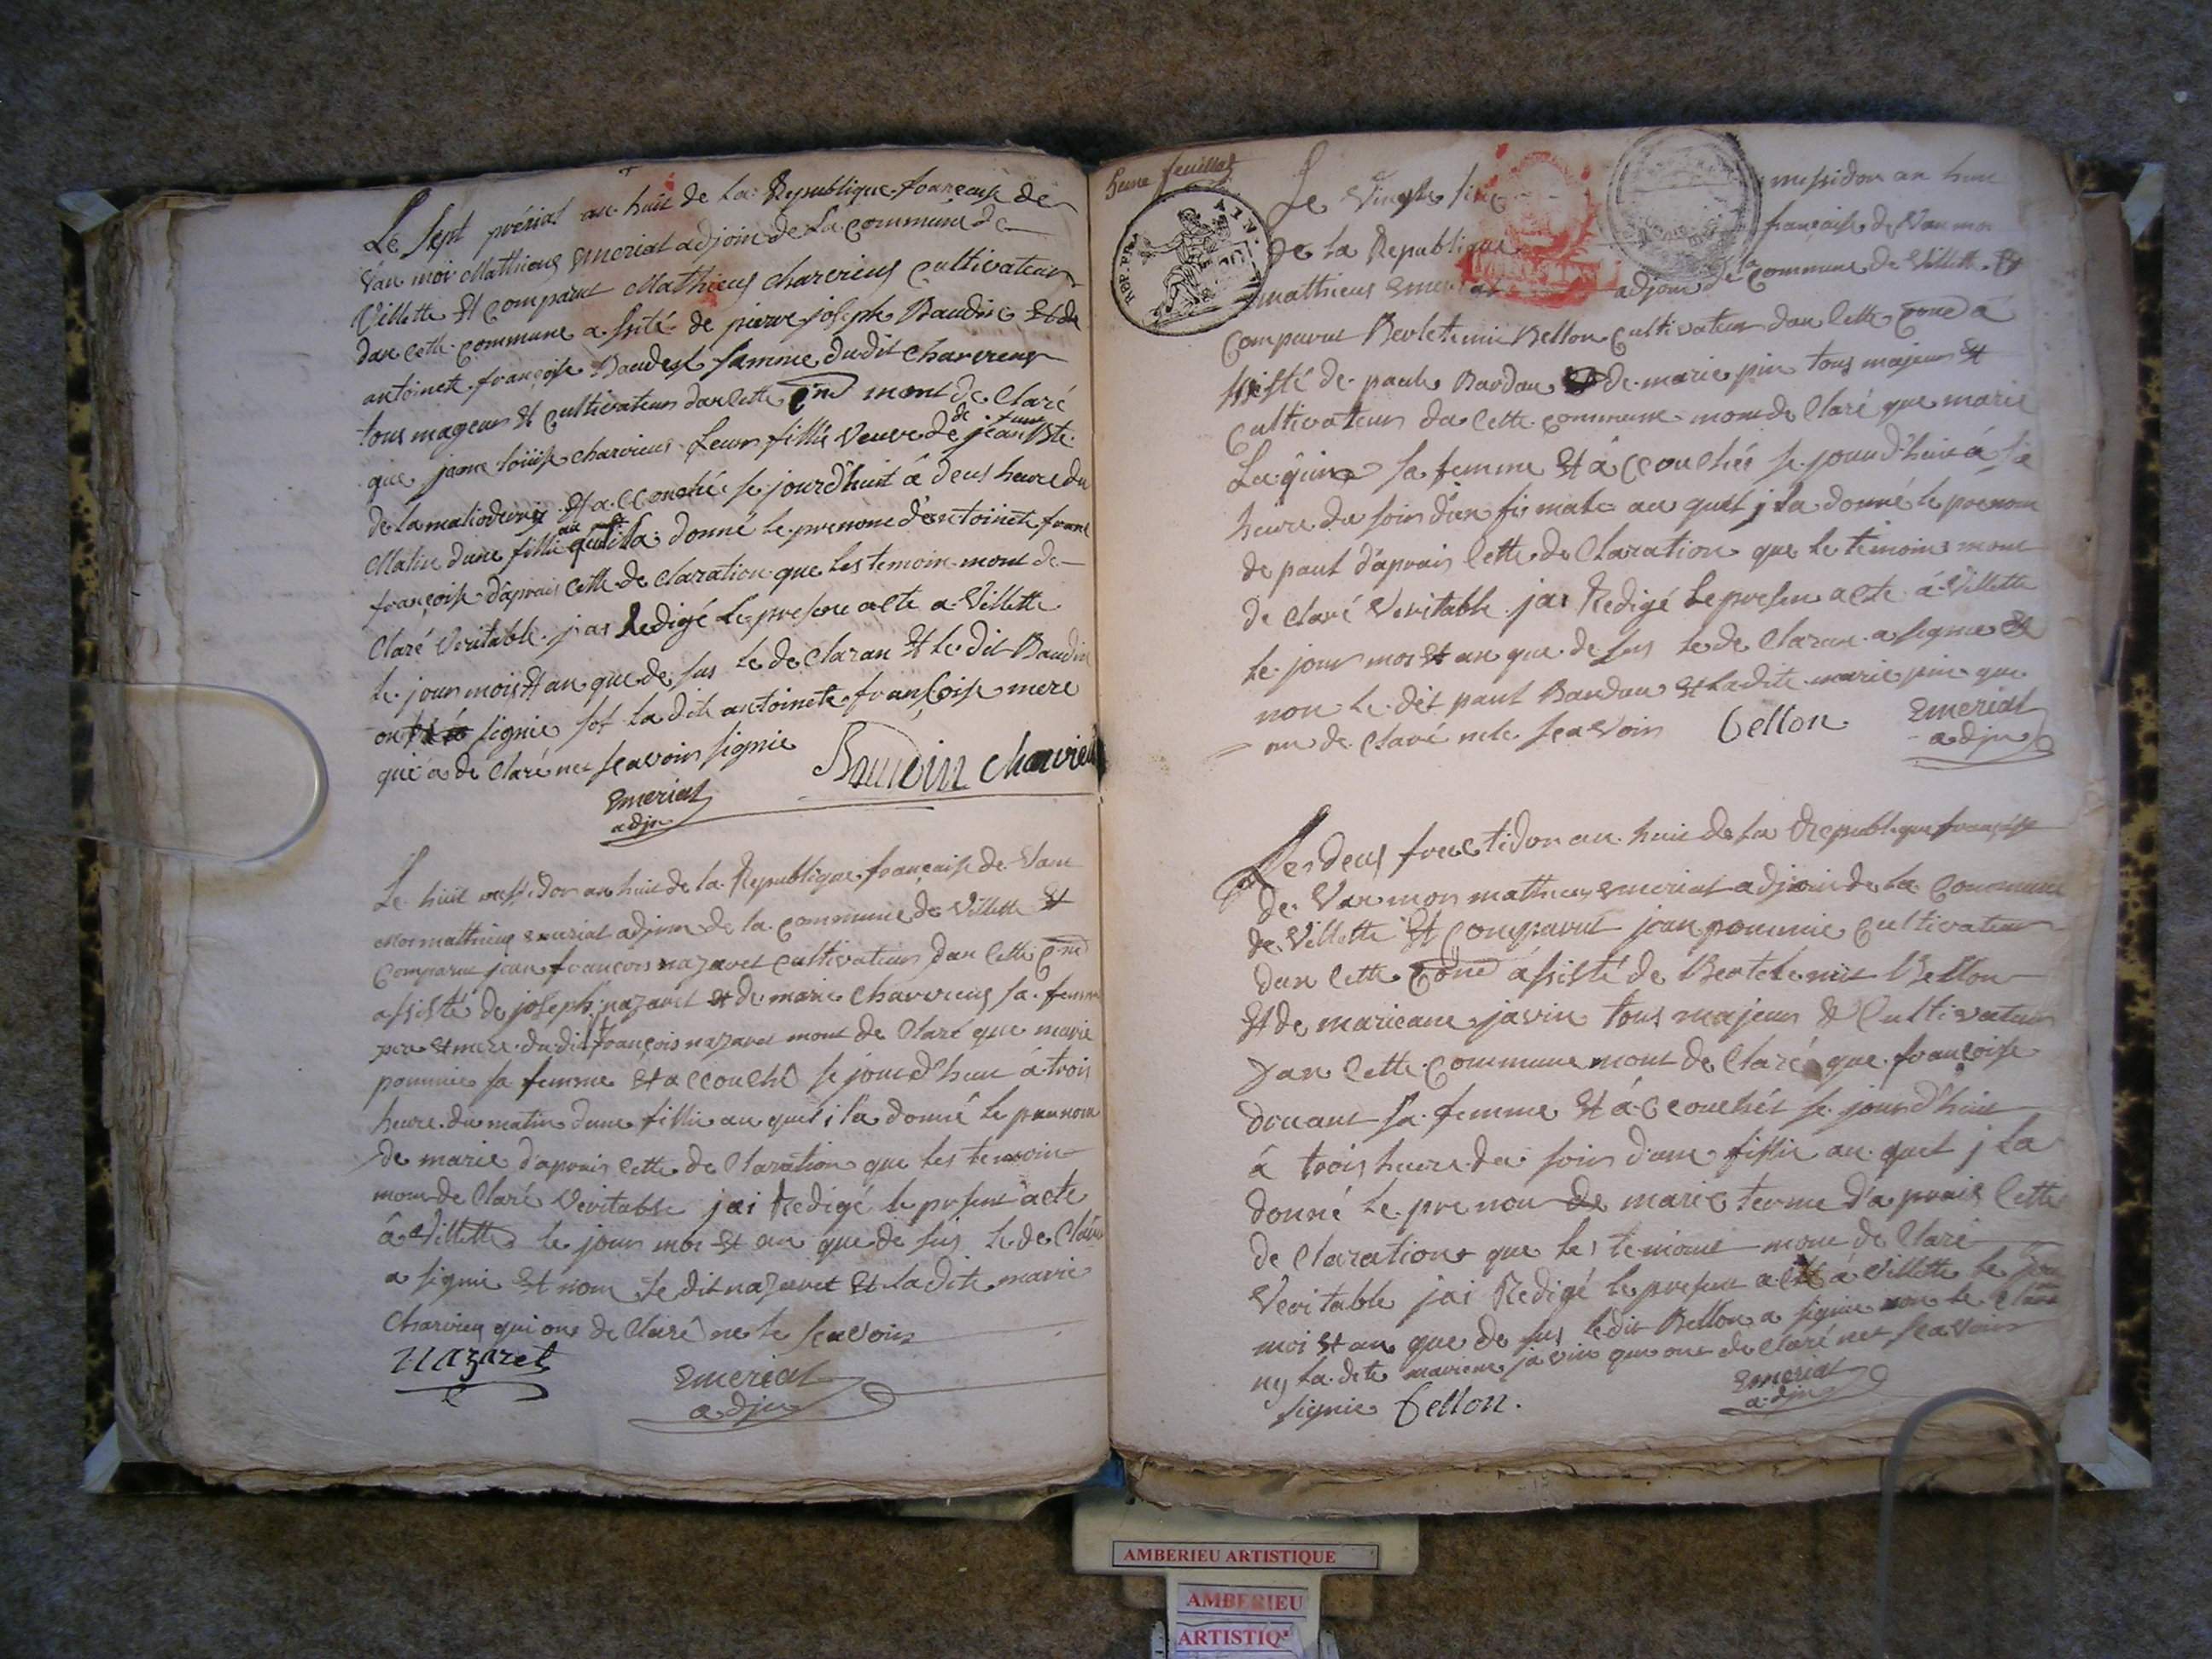 Le sept prérial an huit de la Republique francaise de
van moi Mathieus Emeriat adjoin de La commune de
Villette Et comparut Mathieus charvieus cultivateur
dan cette commune a sisté de pierre joseph Baudin Et de
antoinete françoise Baudest famme dudit charvieus
tous mageurs Et cultivateurs dan cette cne mont de Claré
que jeane loüise charvieus Leur fillie veuve de de funt jean Bte
Et a ccouchée se jourd'huit â deus heure du
Matin dune fillie au quel il la donné le prenome d'antoinete
françoise d'aprais cette de claration que les temoin mont de
Claré Veritable jai Redigé Le presene acte a Villette
le jour mois Et an que de sus le de claran Et le dit Baudin
on signie sof la dite antoinete françoise mere
qui a de Claré nee scavoir signie
Baudin charvieu
Emeriat
adjn
Le huit messidor an huit de la Republique française de Van
Moi matthieus Emeriat adjoin de la commune de Villette Et
comparut jean francois nazaret cultivateur dan cette cne
assisté de joseph nazaret Et de marie charvieus sa femme
pere Et mere du dit françois nazaret mont de Claré que marie
pommie sa femme Et accouché se jourd'hui á trois
heure du matin dune fillie au quel i la donné le prenom
de marie d'aprais cette de Claration que les temoin
mon de Claré Veritable jai Redigé le present acte
â Villette le jour moi Et an que de sus le de Claran
a signie Et nom le dit nazaret Et la dite marie
Charvieus qui on de Claré ne le scavoir
Nazaret
Emeriat
adjn
feuillet
REP. FRA. AIN.
Le Vingte messidor an huit
de la Republique française de Van moi
matthieus Emeriat adjoin de la commune de Villette Et
comparut Berletemie Bellon Cultivateur dan cette cone a
ssisté de paul Bardou de marie pin tous majeurs Et
cultivateurs da cette commune mon de Claré que marie
sa femme Et à ccouchée se jourd'hui á
heure du soir d'un fis male au quel j la donné le prenom
de paul d'aprais cette de Claration que le temoins mont
de claré Veritable jai Redigé Le presen acte á Villette
le jour moi Et an que de sus le de Claran a signie Et
non le dit paul Bardou Et la dite marie pin que
on de claré ne le scavoir
bellon
Emeriat
adjn
Le deus fructidor an huit de la Republique française
de Van moi mathieus Emeriat adjoin de la Commune
de Villette Et Comparut jean pommie cultivateur
dan cette cone ássisté de Bertelemie Bellon
Et de marieane javin tous majeurs & Cultivateur
dan cette commune mont de Claré que françoise
douant sa femme Et á ccouchée se jourd'hui
á trois heure du soir d'une fillie au quel j la
donné le prenom de marie terme d'aprais cette
de Claration que les temoins mon de Claré
Veritable jai Redigé le present acte á Villette le jour
moi Et an que de sus ledit Bellon a signie non le
ny la dite marieane javin que on de Claré nee scavoir
signie bellon.
Emeriat
adjn
AMBERIEU ARTISTIQUE
AMBERIEU
ARTISTIQ